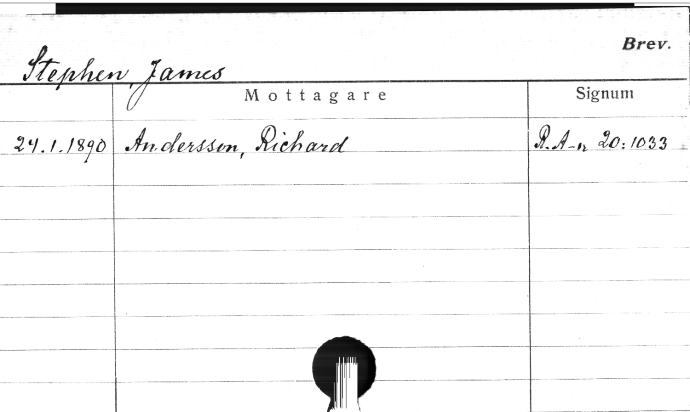 Brev.
Stephen, James
Mottagare Signum
24.1.1890 Andersson, Richard R.A-n 20:1033